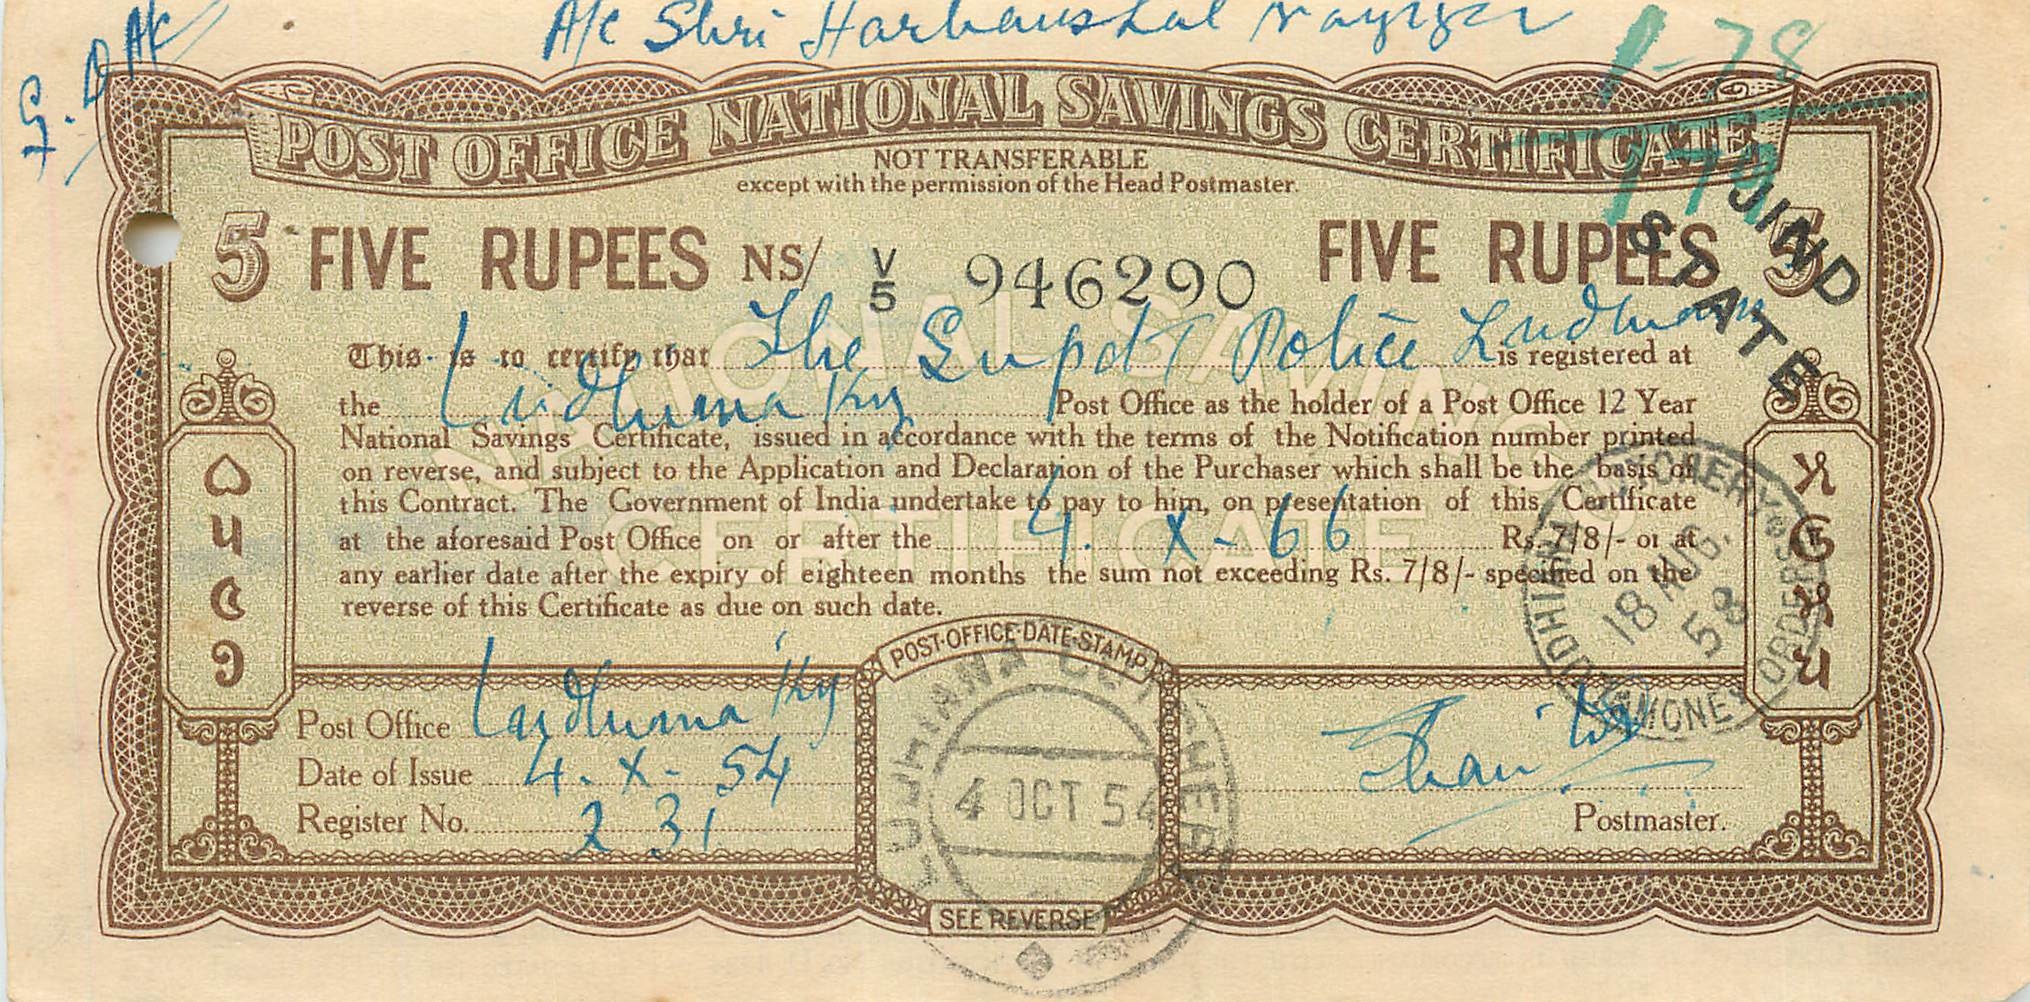 A/c Shri Harbanslal
G. D A/c
1-78
179
POST OFFICE NATIONAL SAVINGS CERTIFICATE
NOT TRANSFERABLE
except with the permission of the Head Postmaster.
JIND
STATE
5 FIVE RUPEES NS/ V/5 946290 FIVE RUPEES 5
This is to certify that The Supdt Police Ludhiana is registered at
the Ludhiana Kty Post Office as the holder of a Post Office 12 Year
National Savings Certificate, issued in accordance with the terms of the Notification number printed
on reverse, and subject to the Application and Declaration of the Purchaser which shall be the basis of
this Contract. The Government of India undertake to pay to him, on presentation of this Certificate
at the aforesaid Post Office on or after the 4. X - 66 Rs. 7/8/- or at
any earlier date after the expiry of eighteen months the sum not exceeding Rs. 7/8/- specified on the
reverse of this Certificate as due on such date.
18 AUG. 58
MONEY ORDERS
POST·OFFICE·DATE·STAMP
LUDHIANA CUTCHERY
4 OCT 54
Post Office Ludhiana Kty
Date of Issue 4. X - 54
Register No. 231
Postmaster.
SEE REVERSE